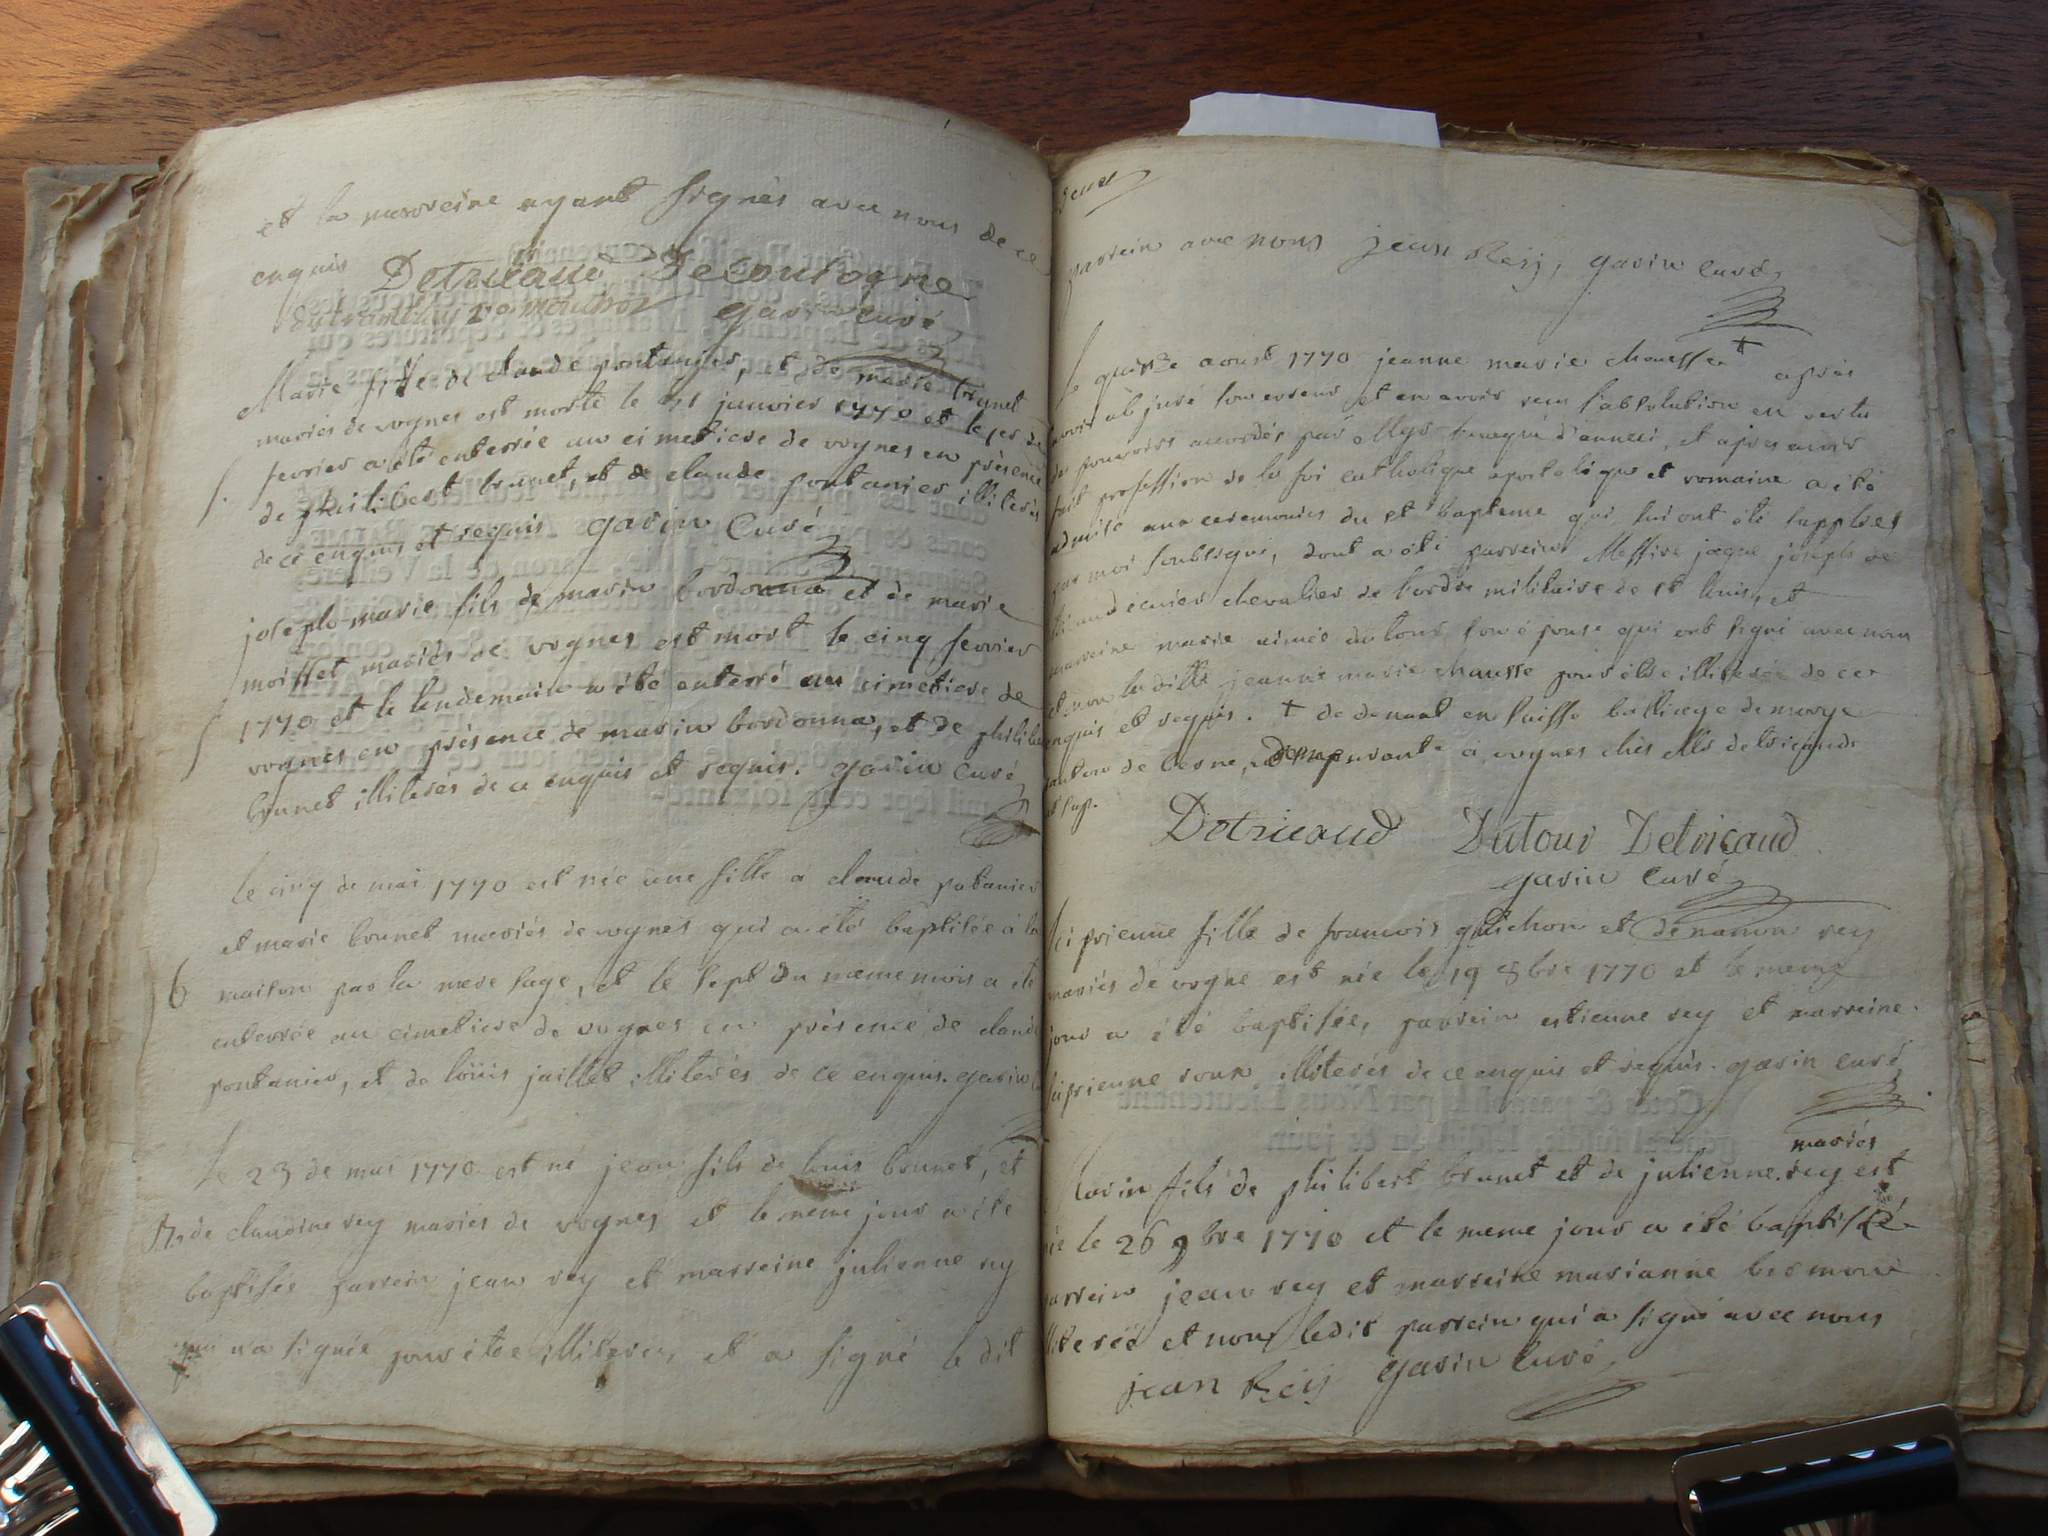 et la marreine ayant signés avec nous de ce
enquis Detricaud Decoulogne
garin curé
Marie fille de claude pontanier, et de marie brunet
mariés de vognes est morte le 31 janvier 1770 et le 1er de
fevrier a été enterrée au cimetiere de vognes en présence
de philibert brunet, et de claude pontanier illiterés
de ce enquis et requis garin Curé
joseph-marie fils de marin bordonna et de marie
moisset mariés de vognes est mort le cinq fevrier
1770 et le lendemain a été enterré au cimetiere de
vognes en présence de marin bordonna, et de philibe
brunet illiterés de ce enquis et requis. garin curé
le cinq de mai 1770 est née une fille a claude potanier
et marie brunet mariés de vognes qui a été baptisée à la
6 maison par la mere sage, et le sept du meme mois a été
enterrée au cimetiere de vognes en présence de claude
pontanier, et de loüis jaillet illiterés de ce enquis. garin
le 23 de mai 1770 est né jean fils de louis brunet, et
de claudine rey mariés de vognes et le meme jour a été
baptisée parrein jean rey et marreine julienne rey
qui n'a signée pour etre illiterée, et a signé le dit
parrein avec nous jean Reij, garin curé
le quinze aoust 1770 jeanne marie chausse + après
avoir abjuré son erreur et en avoir reçu l'absolution en vertu
des pouvoirs accordés par Mgr l'eveque d'anneci, et apres avoir
fait profession de la foi catholique apostolique et romaine a été
admise aux ceremonies du st bapteme qui lui ont été supplées
par moi soussigné, dont a été parrein Messire jaque joseph de
tricaud ecuier chevalier de l'ordre militaire de st louis, et
marreine marie aimée dutour son épouse qui ont signé avec nous
et non la ditte jeanne marie chausse pour etre illiterée de ce
enquis et requis. + de denant en suisse balliage de
canton de berne, demeurante a vognes chés Mr detricaud
Detricaud Dutour Detricaud
garin Curé
siprienne fille de francois guichon et de nanon rey
mariés de vogne est née le 19 8bre 1770 et le meme
jour a été baptisée, parrein estienne rey et marreine
siprienne roux illiterés de ce enquis et requis. garin curé
mariés
Marin fils de philibert brunet et de julienne rey est
né le 26 9bre 1770 et le meme jour a été baptisé
parrein jean rey et marreine marianne bermone
illiterée et non ledit parrein qui a signé avec nous
jean Reij garin Curé